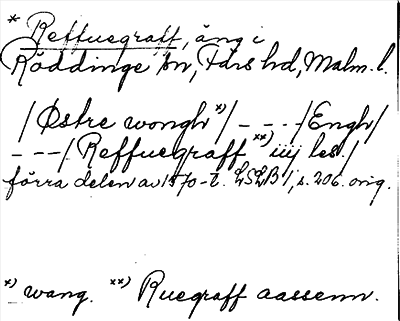 * Reffuegraff, äng i
Röddinge sn, Färs hd, Malm. l.
/ Østre wongh *) / - - - / Engh /
- - - /. Reffuegraff **) iiij les. /
förra delen av 1570-t. LSLB 1, s. 206. orig.
*) wang. **) Ruegraff aassenn.